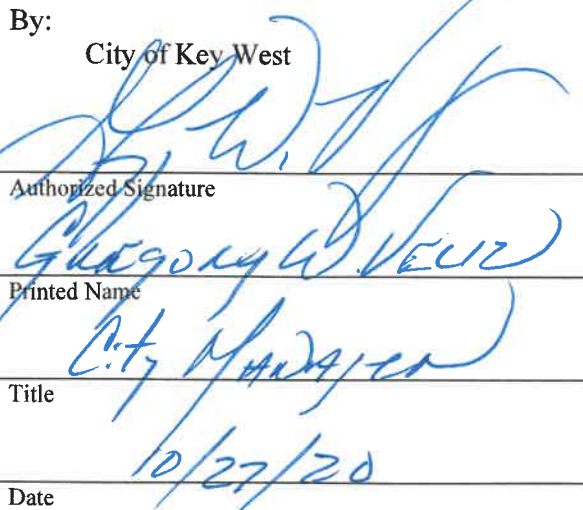 By:
City of Key West
Authorized Signature
Gregory W. Veliz
Printed Name
City Manager
Title
10/27/20
Date